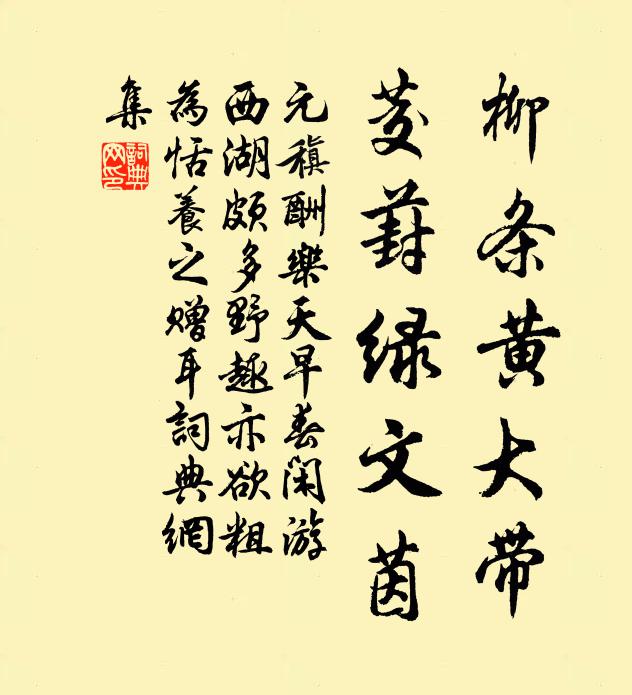 柳条黄大带
茭葑绿文茵
元稹酬樂天早春闲游
西湖颇多野趣亦欲粗
為恬養之赠耳詞典網
集
詞典
网印